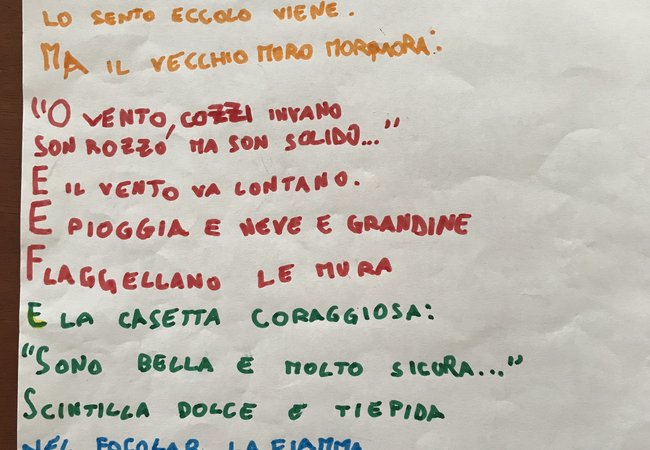 LO SENTO ECCOLO VIENE.
MA IL VECCHIO MURO MORMORA:
"O VENTO, COZZI INVANO
SON ROZZO MA SON SOLIDO..."
E IL VENTO VA LONTANO.
E PIOGGIA E NEVE E GRANDINE
FLAGGELLANO LE MURA
E LA CASETTA CORAGGIOSA:
"SONO BELLA E MOLTO SICURA..."
SCINTILLA DOLCE E TIEPIDA
NEL FOCOLAR LA FIAMMA